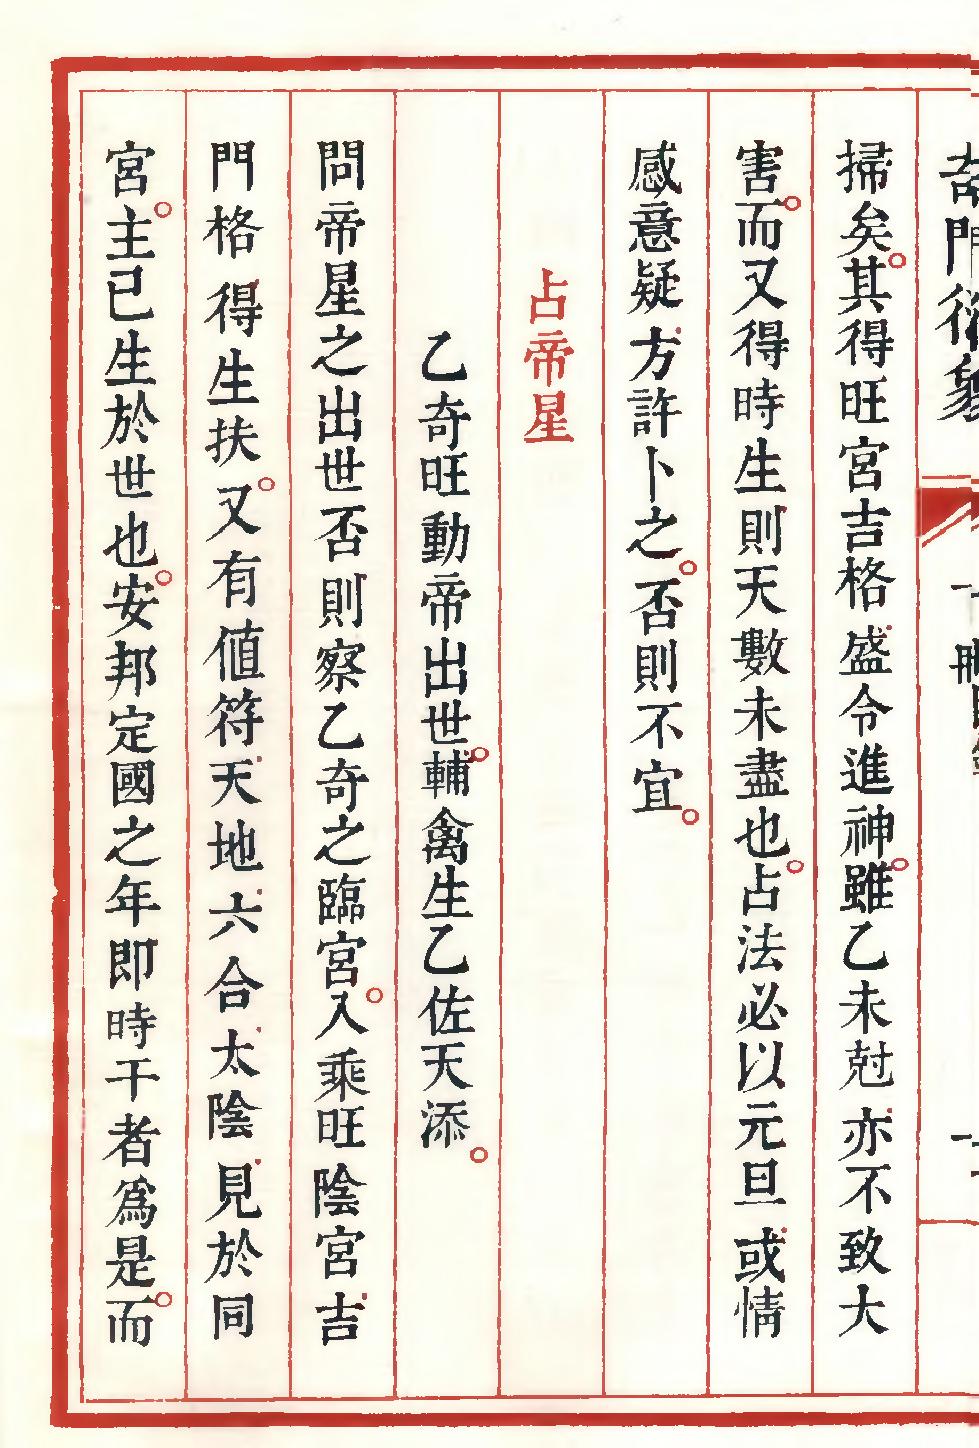 奇門衍象
掃矣。其得旺宮吉格盛令進神。雖乙未尅亦不致大
害。而又得時生則天數未盡也。占法必以元旦或情
感意疑方許卜之。否則不宜。
占帝星
乙奇旺動帝出世。輔禽生乙佐天添。
問帝星之出世否則察乙奇之臨宮。入乘旺陰宮吉
門格得生扶。又有値符天地六合太陰見於同
宮。主已生於世也。安邦定國之年即時干者爲是。而